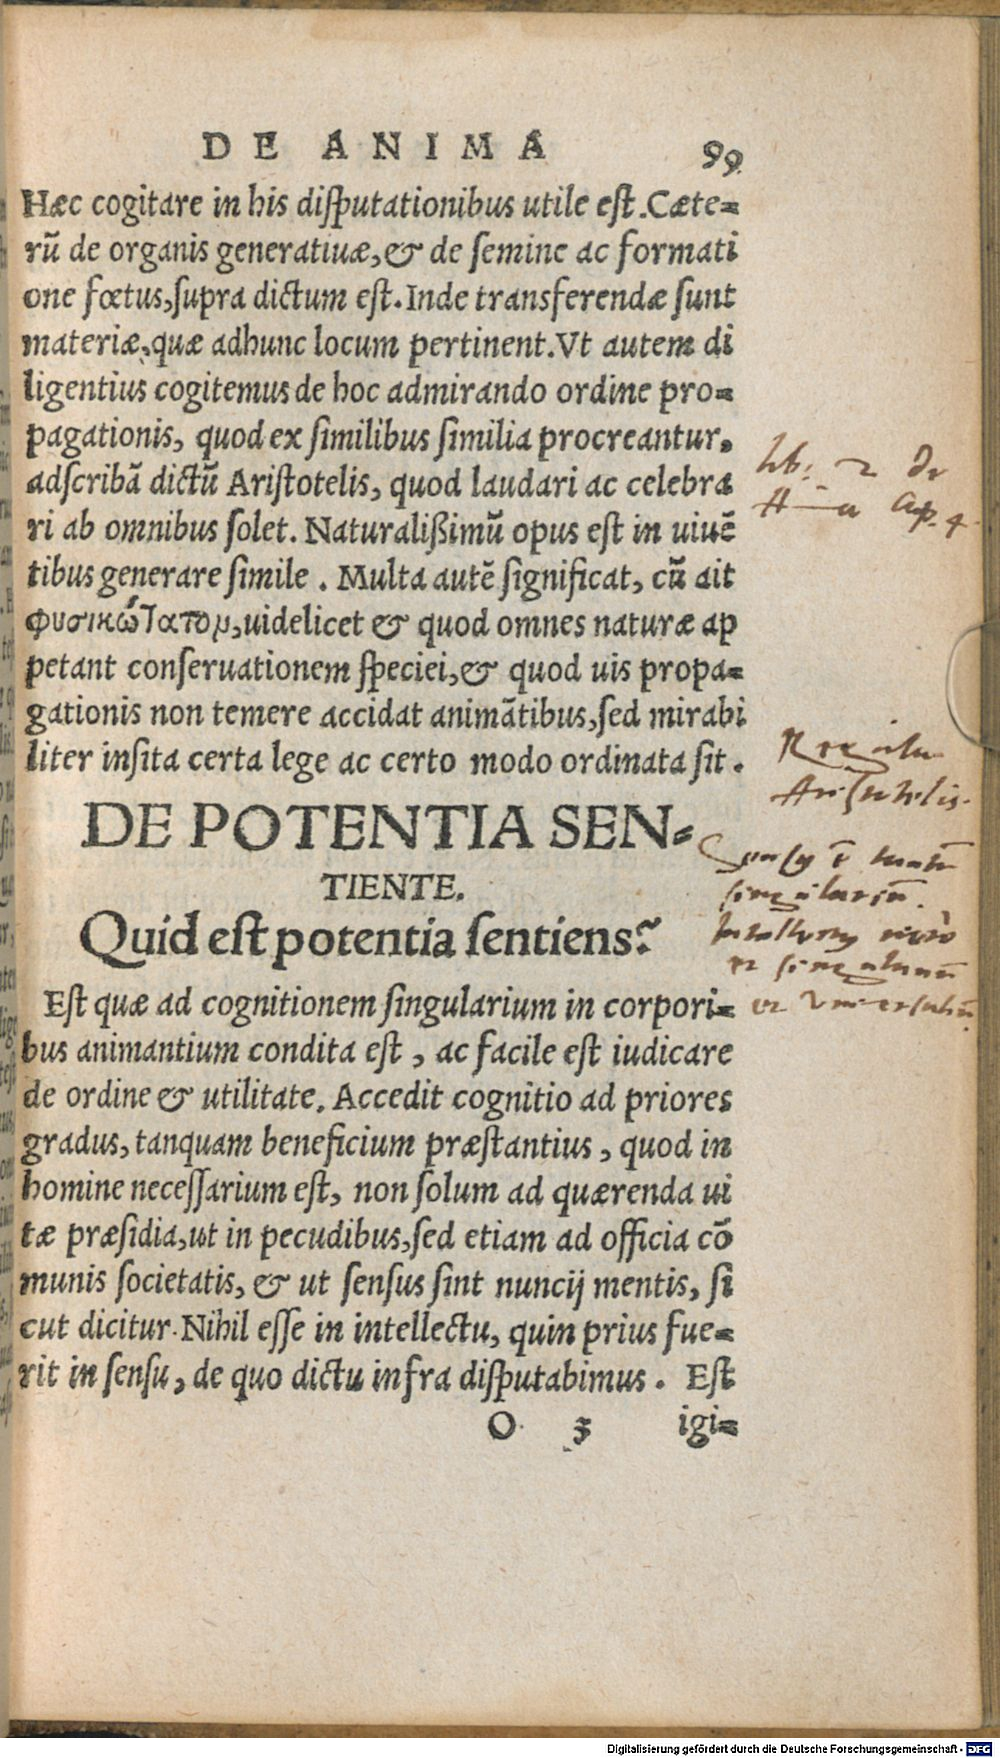 DE ANIMA 99
Hæc cogitare in his diſputationibus utile eſt. Cæte=
rũ de organis generatiuæ, & de ſemine ac formati
one fœtus, ſupra dictum eſt. Inde transferendæ ſunt
materiæ, quæ adhunc locum pertinent. Vt autem di
ligentius cogitemus de hoc admirando ordine pro=
pagationis, quod ex ſimilibus ſimilia procreantur,
adſcribã dictũ Ariſtotelis, quod laudari ac celebra
ri ab omnibus ſolet. Naturalißimũ opus eſt in uiuẽ
tibus generare ſimile. Multa autẽ ſignificat, cũ ait
φυσικώτατον, uidelicet & quod omnes naturæ ap
petant conſeruationem ſpeciei, & quod uis propa=
gationis non temere accidat animãtibus, ſed mirabi
liter inſita certa lege ac certo modo ordinata ſit.
DE POTENTIA SEN=
TIENTE.
Quid eſt potentia ſentiens?
Eſt quæ ad cognitionem ſingularium in corpori=
bus animantium condita eſt, ac facile eſt iudicare
de ordine & utilitate. Accedit cognitio ad priores
gradus, tanquam beneficium præſtantius, quod in
homine neceſſarium eſt, non ſolum ad quærenda ui
tæ præſidia, ut in pecudibus, ſed etiam ad officia cõ
munis ſocietatis, & ut ſenſus ſint nuncij mentis, ſi
cut dicitur. Nihil eſſe in intellectu, quin prius fue=
rit in ſenſu, de quo dictu infra diſputabimus. Eſt
O 3 igi=
lib: 2 de
Cap. 4
Regula
Ariſtotelis.
ſingulariũ.
Digitalisierung gefördert durch die Deutsche Forschungsgemeinschaft - DFG